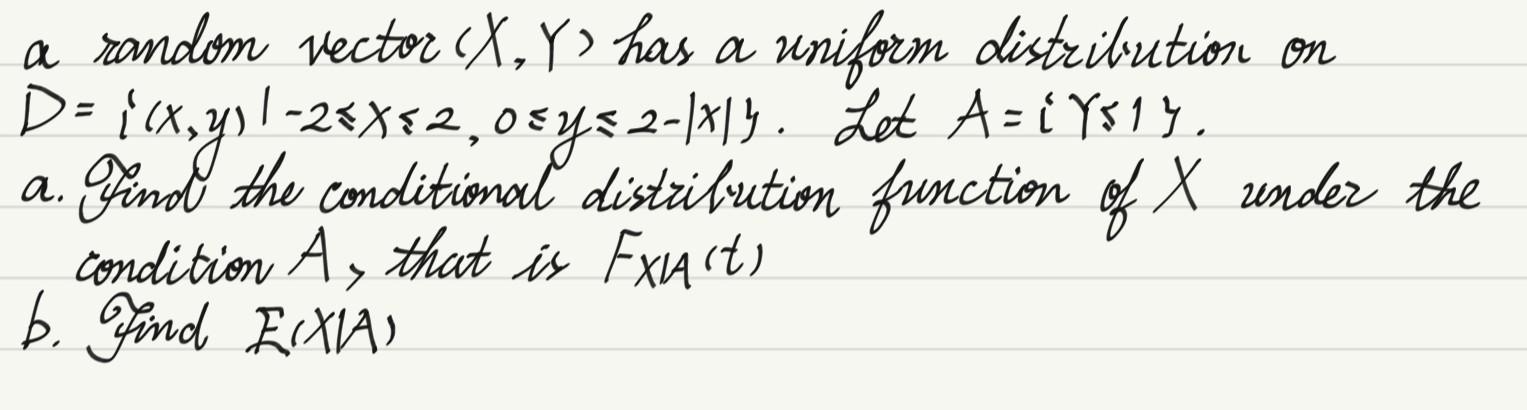 a random vector (X, Y) has a uniform distribution on
D = {(x,y) | -2≤x≤2, 0≤y≤2-|x|}. Let A = {Y≤1}.
a. Find the conditional distribution function of X under the
condition A, that is F_{X|A}(t)
b. Find E(X|A)